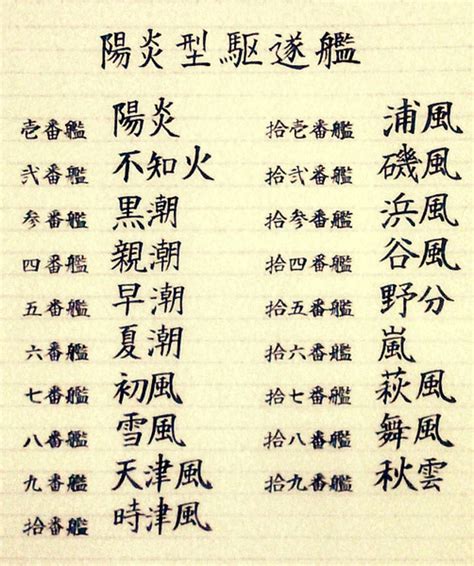 陽炎型駆逐艦
壱番艦 陽炎
弐番艦 不知火
参番艦 黒潮
四番艦 親潮
五番艦 早潮
六番艦 夏潮
七番艦 初風
八番艦 雪風
九番艦 天津風
拾番艦 時津風
拾壱番艦 浦風
拾弐番艦 磯風
拾参番艦 浜風
拾四番艦 谷風
拾五番艦 野分
拾六番艦 嵐
拾七番艦 萩風
拾八番艦 舞風
拾九番艦 秋雲